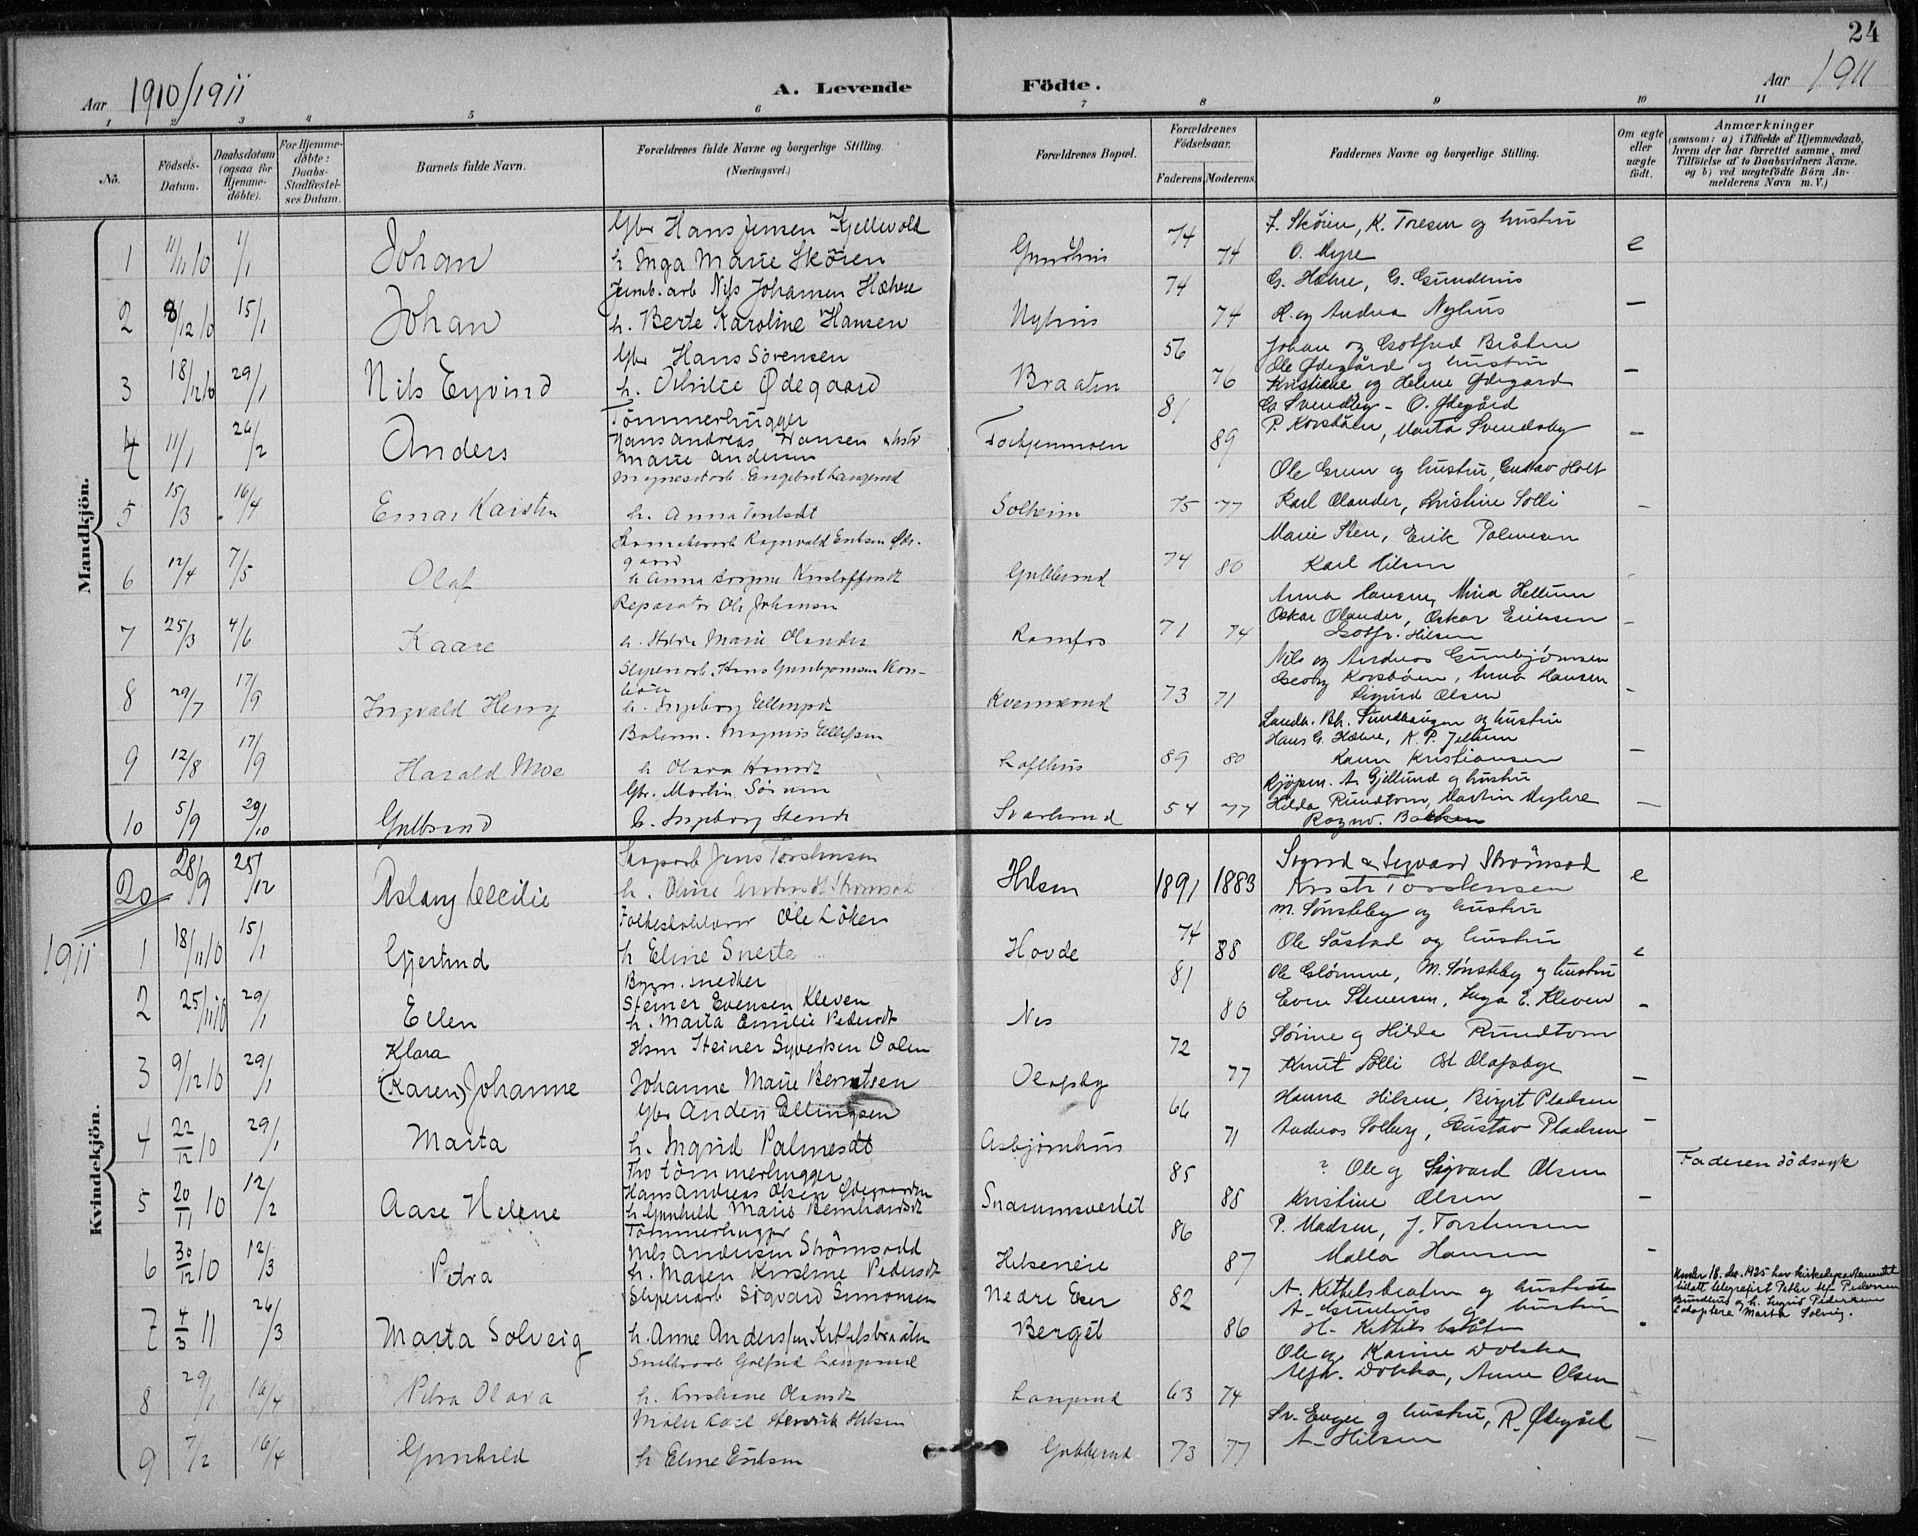 24
Aar 1910/1911
A. Levende Födte.
Aar 1911
1 2 3 4 5 6 7 8 9 10 11
No.
Födsels-Datum.
Daabsdatum (ogsaa for Hjemmedöbte).
For Hjemmedöbte: Daabs-Stadfestelses Datum.
Barnets fulde Navn.
Forældrenes fulde Navne og borgerlige Stilling. (Næringsvei.)
Forældrenes Bopæl.
Forældrenes Födselsaar.
Faderens. Moderens.
Faddernes Navne og borgerlige Stilling.
Om ægte eller uægte födt.
Anmærkninger
(saasom: a) i Tilfælde af Hjemmedaab, hvem der har forrettet samme, med Tilföielse af to Daabsvidners Navne, og b) ved uægtefödte Börn Anmelderens Navn m. V.)
Mandkjön.
1 11/11 10 1/1 Johan
Gbr Hans Jensen Kjellevold
h. Inga Marie Skören
74 74
F. Skøien, K. Toresen og hustru
O. Myre
e
2 8/12 10 15/1 Johan
Nils Johansen Hæhre
h. Berte Karoline Hansen
Nyhus
74 74
G. Hæhre, G. Gundhus
K. og Andrea Nyhus
—
3 18/12 10 29/1 Nils Eyvind
Gbr Hans Sörensen
h. Othilie Ødegaard
Braaten
56 76
Johan og Gotfred Bråten
Ole Ødegård og hustru
Kristiane og Helene Ødegård
—
4 11/1 26/2 Anders
Tömmerhugger
Hans Andreas Hansen
Marie Andersen
81 89
G. Svendby - O. Ødegård
P. Korsbøen, Marta Svendsby
—
5 15/3 16/4 Einar Karsten
h. Anna
Solheim
75 77
Ole Gren og hustru, Gustav Holt
Karl Olander, Kristine Solli
—
6 12/4 7/5 Olaf
Ragnvald Eriksen Øde-
gaard
h Anna
Gubberud
74 80
Marie Sten, Erik Palmesen
Karl Hilsen
7 25/3 4/6 Kaare
Reparatör Ole Johansen
h. Marie Olander
Ramfos
71 74
Anna Hansen, Mina Hellum
Oskar Olander, Oskar Eriksen
Gotfr. Hilsen
—
8 29/7 17/9 Ingvald Henry
Sliperiarb. Hans Gunbjørnsen Kors-
böen
h. Ingeborg Ellingsdt
Kvernerud
73 71
Nils og Andreas Gunbjørnsen
Georg Korsbøen, Anna Hansen
Sigurd Olsen
—
9 12/8 17/9 Harald Moe
Magnus Ellefsen
h Olava
Lofthus
89 80
Landh. Bh. Sundhaugen og hustru
Hans G. Hæhre, K. P. Jellum
Karen Kristiansen
—
10 5/9 29/10 Gulbrand
Gbr. Martin Sörum
h. Ingeborg
Svarterud
54 77
Kjøpm. A. Gjellund og hustru
Hilda Rundtom, Martin Myhre
Ragnv. Bakken
—
20 28/9 25/12 Aslaug Cecilie
Jens Torstensen
h. Oline Andersdt Strömsod
Hilsen
1891 1883
Sigrid & Sigvard Strömsod
Kristi Torstensen
e
Kvindekjön.
1911
1 18/11 10 15/1 Gjertrud
Folkeskolelærer Ole Löken
h Eline Sneste
Hovde
74 88
M. Sønsteby og hustru
Ole Såstad og hustru
e
2 25/11 10 29/1 Ellen
Bygn. snedker
Steiner Evensen Kleven
h. Marta Emilie Pedersdt
Nes
81 86
Ole Glömme, M. Sønsteby og hustru
Even Stenersen, Inga E. Kleven
—
3 9/12 10 29/1 Klara
(Karen) Johanne
Hsm Steiner Syvertsen Dalen
Johanne Marie Berntsen
Olafsby
72 77
Sörine og Hilda Rundtom
Knut Solli Ol Olafsbye
—
4 22/12 10 29/1 Marta
Gbr Anders Ellingsen
h. Ingrid Palmesdt
Asbjørnhus
66 71
Hanna Hilsen, Birgit Pladsen
Andreas Solberg, Gustav Pladsen
—
5 20/11 10 12/2 Aase Helene
Tømmerhugger
Hans Andreas Olsen Ødegaarden
h. Gunhild Marie Bernhardsdt
Snarumsvertet
85 88
Ole og Sigvard Olsen
Kristine Olsen
—
Faderen dödssyk
6 30/12 10 12/3 Petra
Tömmerhugger
Nils Andersen Strömsodd
h. Maren Kirstine Pedersdt
Hilseneie
86 87
P. Madsen, J. Torstensen
Malla Hansen
—
7 4/3 11 26/3 Marta Solveig
Sliperiarb Sigvard Simonsen
h. Anne Andersen Kittelsbraaten
Nedre Eker
Berget
82 86
A. Kittelsbraaten og hustru
A. Gundhus og hustru
H. Kittelsbråten
Under 18. des. 1925 har kirkedepartementet
tillatt telegrafist Petter Pedersen
Gundhus og h. Sigrid Pedersen
å adoptere Marta Solveig.
8 29/1 16/4 Petra Olava
Gotfred Langerud
h. Kristiane Olausdt
Langerud
63 74
Ole og Karine Dolska
Alfh. Dolska, Anne Olsen
9 7/2 16/4 Gunhild
Maler Karl Henrik Hilsen
h Eline Eriksen
Gubberud
73 77
Sv. Enger og hustru, R. Ødegård
A. Hilsen
—